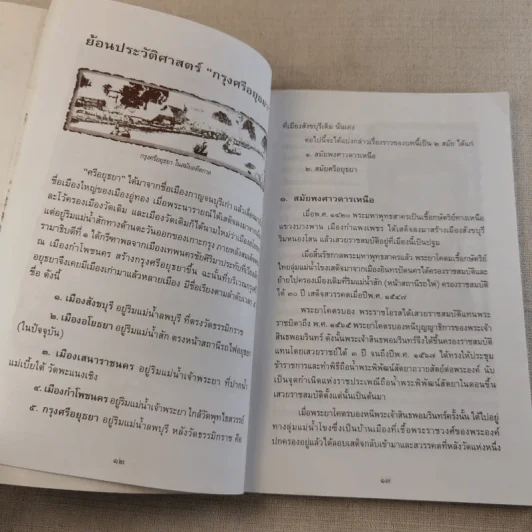 ย้อนประวัติศาสตร์ "กรุงศรีอยุธยา
กรุงศรีอยุธยา ในสมัยอดีตกาล
"ศรีอยุธยา" ได้มาจากชื่อเมืองกาญจนบุรีเก่า แล้วเลื่อน
ชื่อเมืองใหญ่ของเมืองอู่ทอง เมื่อพระนารายณ์ได้เสด็จลงมา
ละโว้ครองเมืองวัดเดิม และเมืองวัดเดิมก็ได้นามใหม่ว่า
แต่อยู่ริมแม่น้ำสักทางด้านตะวันออกของเกาะกรุง ภายหลัง
รามาธิบดีที่ ๑ ได้กรีฑาพลจากเมืองเทพนครชัยศิริมา
ณ เมืองกำโพชนคร สร้างกรุงศรีอยุธยาขึ้น ฉะนั้นที่บริเวณ
อยุธยาจึงเคยมีเมืองเก่ามาแล้วหลายเมือง มีชื่อเรียงตามลำดับ
ชื่อ ดังนี้
๑. เมืองสังขบุรี อยู่ริมแม่น้ำลพบุรี ที่ตรงวัดธรรมิกราช
๒. เมืองอโยธยา อยู่ริมแม่น้ำสัก ตรงหน้าสถานีรถไฟอยุธยา
(ในปัจจุบัน)
๓. เมืองเสนาราชนคร อยู่ริมแม่น้ำเจ้าพระยา ที่ปากน้ำ
แม่เบี้ยใต้ วัดพะแนงเชิง
๔. เมืองกำโพชนคร อยู่ริมแม่น้ำเจ้าพระยา ใกล้วัดพุทไธสวรรย์
๕. กรุงศรีอยุธยา อยู่ริมแม่น้ำลพบุรี หลังวัดธรรมิกราช คือ
๑๒
ที่เมืองสังขบุรีเดิม นั่นเอง
ต่อไปนี้จะได้แบ่งกล่าวเรื่องราวของบทนี้เป็น ๒ สมัย ได้แก่
๑. สมัยพงศาวดารเหนือ
๒. สมัยศรีอยุธยา
๑. สมัยพงศาวดารเหนือ
เมื่อพ.ศ. ๑๔๒๐ พระมหาพุทธสาครเป็นเชื้อกษัตริย์ทางเหนือ
แขวงบางพาน เมืองกำแพงเพชร ได้เสด็จลงมาสร้างเมืองสังขบุรี
ริมหนองโสน แล้วเสวยราชสมบัติอยู่ที่เมืองนี้เป็นปฐม
เมื่อสิ้นรัชกาลพระมหาพุทธสาครแล้ว พระยาโคดมเชื้อกษัตริย์
ไทยลุ่มแม่น้ำโขงเสด็จมาจากเมืองอินทรปัตนครได้ครองราชสมบัติและ
ย้ายไปครองเมืองเดิมที่ริมแม่น้ำสัก (หน้าสถานีรถไฟ) ครองราชสมบัติ
ได้ ๓๐ ปี เสด็จสวรรคตเมื่อปีพ.ศ. ๑๕๔๗
พระยาโคตรบอง พระราชโอรสได้เสวยราชสมบัติแทนพระ
ราชบิดาถึง พ.ศ. ๑๕๖๕ พระยาโคตรบองหนีบุญญาธิการของพระเจ้า
สินธพอมรินทร์ ดังนั้นพระเจ้าสินธพอมรินทร์จึงได้ขึ้นครองราชสมบัติ
แทนโดยเสวยราชย์ได้ ๓ ปี จนถึงปีพ.ศ. ๑๕๖๗ ได้ทรงให้ประชุม
ข้าราชการและทำพิธีถือน้ำพระพิพัฒน์สัตยาถวายสัตย์ต่อพระองค์ นับ
เป็นจุดกำเนิดแห่งราชประเพณีถือน้ำพระพิพัฒน์สัตยาในตอนขึ้น
เสวยราชสมบัติตั้งแต่นั้นเป็นต้นมา
เมื่อพระยาโคตรบองหนีพระเจ้าสินธพอมรินทร์ครั้งนั้น ได้ไปอยู่
ทางลุ่มแม่น้ำโขงซึ่งเป็นบ้านเมืองที่เชื้อพระราชวงศ์ของพระองค์
ปกครองอยู่แล้วได้ลอบเสด็จกลับเข้ามาและสวรรคตที่หลังวัดแห่งหนึ่ง
๑๓